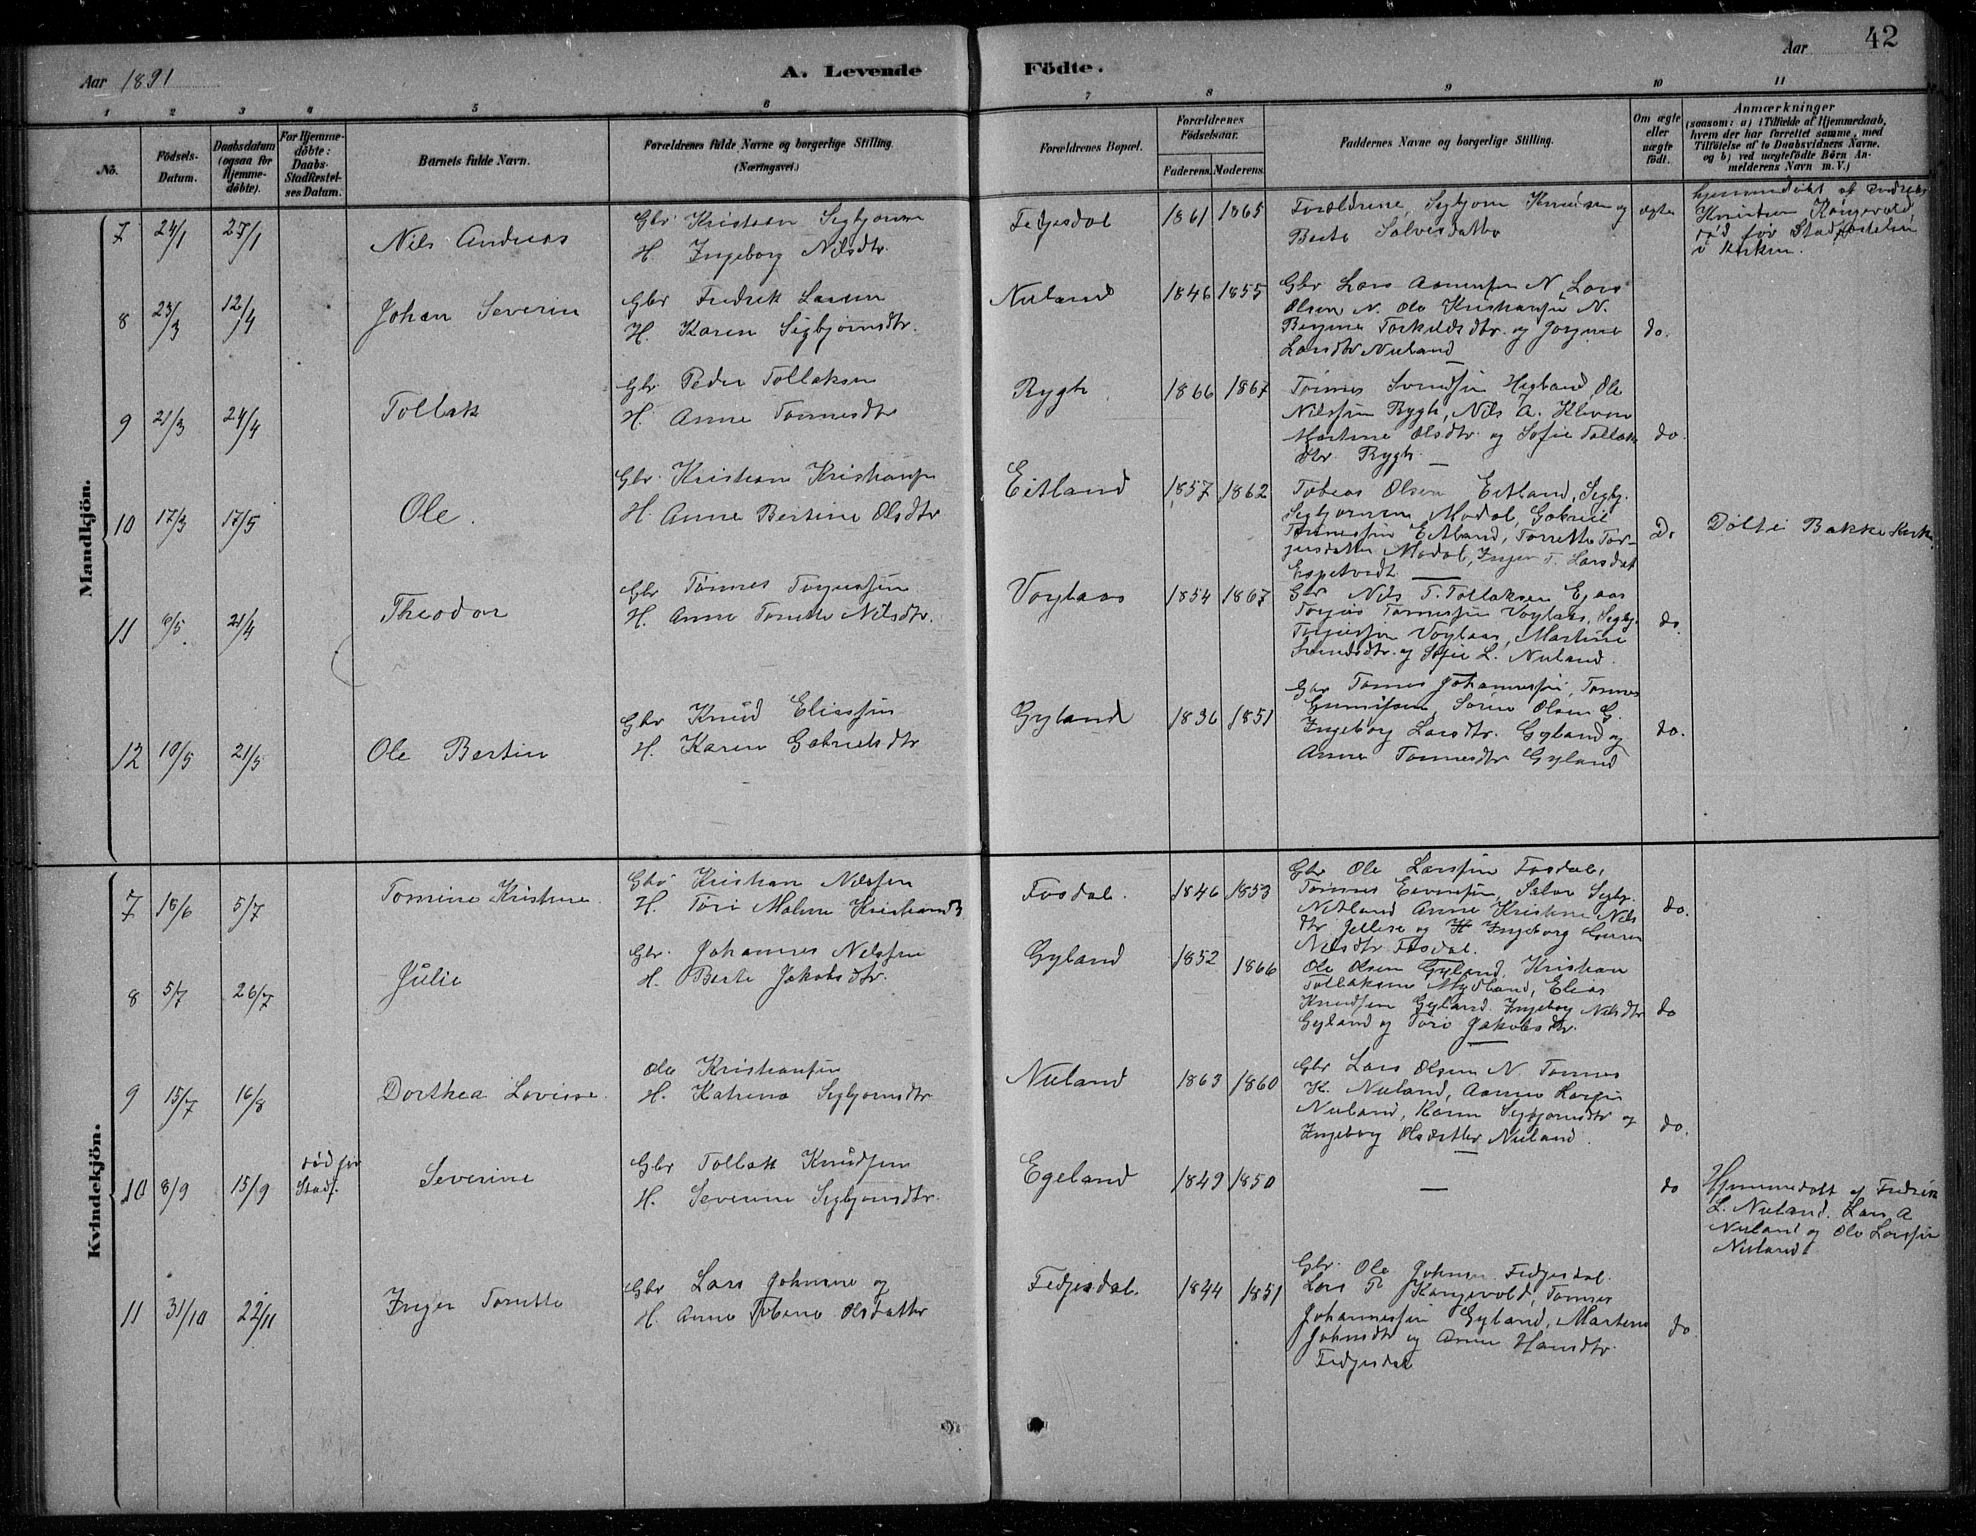 42
Aar 1891
A. Levende
Födte.
Aar
1 2 3 4 5 6 7 8 9 10 11
No.
Födsels-Datum.
Daabsdatum (ogsaa for Hjemme-döbte).
For Hjemme-döbte: Daabs-Stadfæstel-ses Datum.
Barnets fulde Navn.
Forældrenes fulde Navne og borgerlige Stilling. (Næringsvei.)
Forældrenes Bopæl.
Forældrenes Födselsaar.
Faderens. Moderens.
Faddernes Navne og borgerlige Stilling.
Om ægte eller uægte födt.
Anmærkninger
(saasom: a) i Tilfælde af Hjemmedaab, hvem der har forrettet samme, med Tilföielse af to Daabsvidners Navne, og b) ved uægtefödte Börn An-melderens Navn m. V.)
Mandkjön.
7 24/1 27/1 Nils Andreas
Gbr. Kristian Sigbjornsen
H. Ingeborg Nilsdtr.
Fedjesdal 1861 1865
Forældrene, Sigbjorn Knudsen og
Berte Salvesdatter
ægte
hjemmedöbt af Andreas
Knudsen Kongevold,
död før Stadfæstelsen
i Kirken.
8 23/3 12/4 Johan Severin
Gbr Fredrik Larsen
H. Karen Sigbjornsdtr.
Nuland 1846 1855
Gbr Lars Aanensen N, Lars
Olsen N. Ole Kristiansen N.
Torkildsdtr. og
Larsdtr Nuland
do.
9 21/3 24/4 Tollak
Gbr. Peder Tollaksen
H. Anne Tonnesdtr
Rygh 1866 1867
Tönnes Svendsen Hegland, Ole
Nilssen Rygh, Nils A. Kleven
Martine Olsdtr. og Sofie Tollaks
dtr Rygh.
do.
10 17/3 17/5 Ole.
Gbr. Kristian Kristiansen
H. Anne Bertine Olsdtr
Eitland 1857 1862
Tobias Olsen Eitland, Sigbj.
Sigbjornsen Modal, Gabriel
Tönnessen Eitland, Torrette Tor-
jusdatter Modal, Inger T. Larsdat
Espetvedt
Do
Döbt i Bakke Kirke.
11 6/5 21/4 Theodor
Gbr Tönnes Torjussen
H. Anne Torette Nilsdtr.
Voglaas 1854 1867
Gbr Nils T. Tollaksen Egaas
Torjus Tonnessen Voglaas, Sigbj.
Torjussen Voglaas, Martine
Svendsdtr. og Sofie L. Nuland.
do.
12 10/5 21/5 Ole Bertin
Gbr Knud Eliassen
H. Karen Gabrielsdtr
Gyland 1836 1851
Gbr Tönnes Johannessen, Tonnes
Sörin Olsen G.
Ingeborg Larsdtr. Gyland og
Anne Tonnesdtr Gyland
do.
Kvindekjön.
7 18/6 5/7 Tomine Kristine.
Gbr Kristian Nilssen
H. Tori Malene Kristiansd.
Fosdal. 1846 1853
Gbr Ole Larssen Fosdal,
Tönnes Sigbj.
Netland Anne Kristine Nils
dtr Jellese og H Ingeborg
Nilsdtr Fosdal.
do.
8 5/7 26/7 Julie
Gbr. Johannes Nilssen
H. Berte Jakobsdtr.
Gyland 1852 1866
Ole Olsen Gyland, Kristian
Tollaksen Mydland, Elias
Knudsen Gyland, Ingeborg Nilsdtr
Gyland og Tori Jakobsdtr.
do
9 15/7 16/8 Dorthea Lovisse.
Ole Kristiansen
H. Katrina Sigbjornsdtr
Nuland 1863 1860
Gbr Lars Olsen N. Tonnes
K. Nuland, Aanen Larsen
Nuland, Karen Sigbjornsdtr og
Ingeborg Olsdatter Nuland.
do.
10 8/9 15/9 död før Stadf. Severine
Gbr Tollak Knudsen
H. Severine Sigbjornsdtr.
Egeland 1849 1850
—
do
Hjemmedöbt af Fredrik
L. Nuland. Lars A
Nuland og Ole Larssen
Nuland.
11 31/10 22/11 Inger Torette
Gbr Lars Johnsen og
H. Anne Tobine Olsdatter
Fedjesdal. 1844 1851
Gbr. Ole Johnsen Fedjesdal.
Lars P. Kongevold, Tonnes
Johannessen Gyland, Martine
Johnsdtr og Anne Hansdtr.
Fedjesdal
do